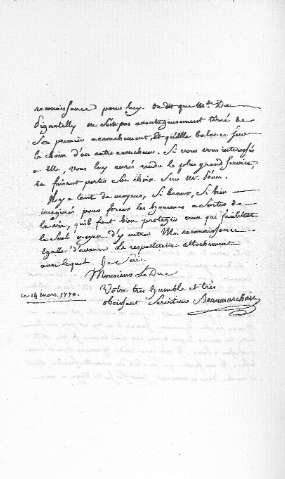 reconnaissance pour luy on dit que Me la Dsse
Pignatelly ne s'est pas avantageusement tirée de
son premier accouchement, et qu'elle balance sur
le choix d'un autre accoucheur. Si vous vous interessés
a elle, vous luy aurés rendu le plus grand service
en faisant porter son choix sur Mr.
Il y a tant de moyens, si beaux, si bien
imaginés pour forcer les hommes a sortir de
la vie, qu'il faut bien protéger ceux qui facilitent
le seul moyen d'y entrer. Ma reconnaissance
égalle d'avance le respectueux attachement
avec lequel Je suis
Monsieur Le Duc
ce 14 mars 1770.
Votre très humble et très
obéissant serviteur Beaumarchais